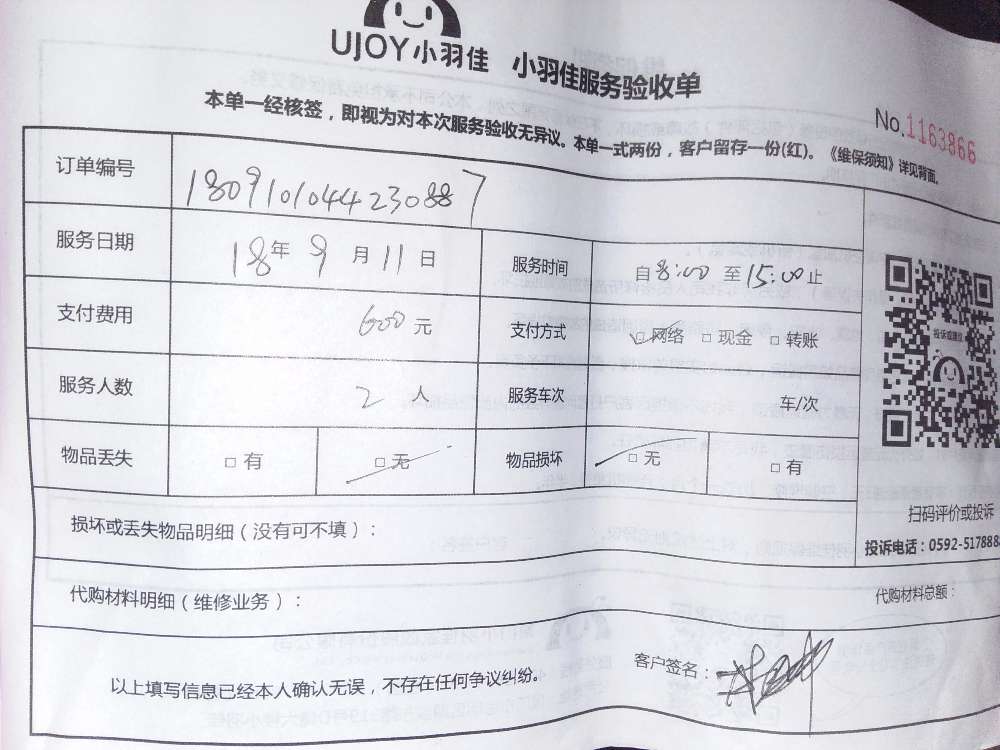 UJOY小羽佳 小羽佳服务验收单
No.1163866
本单一经核签，即视为对本次服务验收无异议。本单一式两份，客户留存一份(红)。《维保须知》详见背面。
订单编号 180910104423088７
服务日期 18年9月11日 服务时间 自8:00至15:00止
支付费用 600元 支付方式 ☑网络 □现金 □转账
服务人数 2人 服务车次 车/次
物品丢失 □有 □无 物品损坏 □无 □有
投诉或建议
扫码评价或投诉
投诉电话：0592-517888
损坏或丢失物品明细（没有可不填）：
代购材料明细（维修业务）： 代购材料总额：
以上填写信息已经本人确认无误，不存在任何争议纠纷。 客户签名：